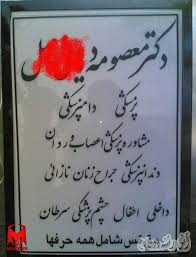 دکتر معصومه
پزشکی دامپزشکی
مشاوره پزشکی اعصاب و روان
دندانپزشکی جراح زنان نازائی
داخلی اطفال چشم پزشکی سرطان
شامل همه حرفها